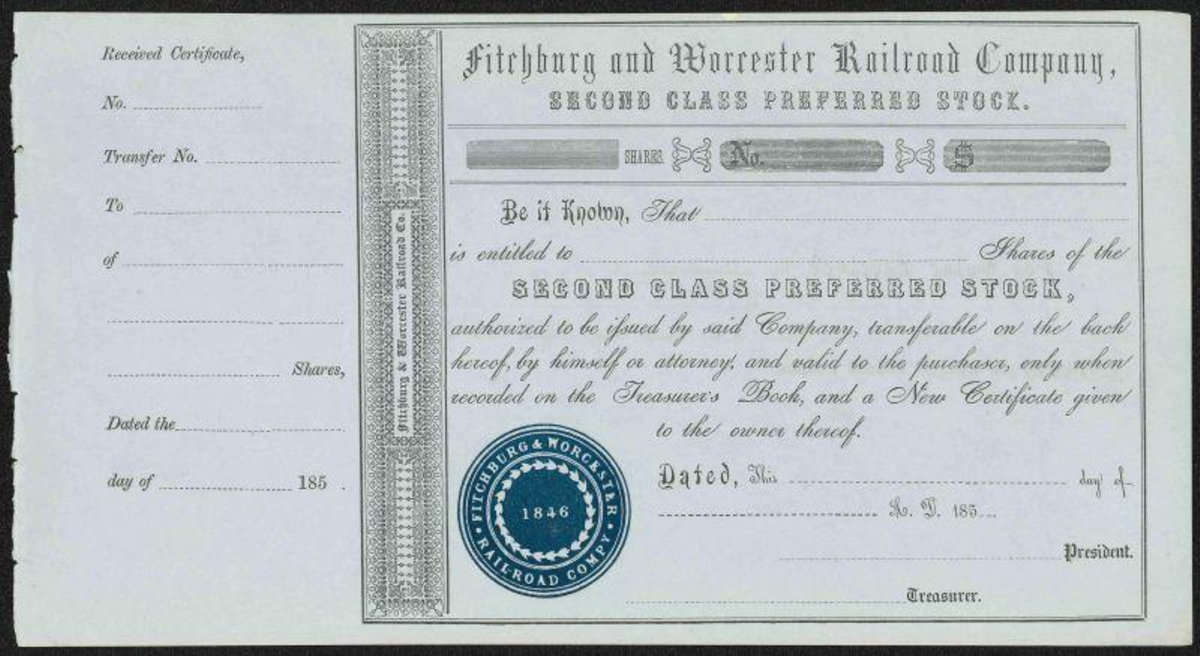 Received Certificate,
No.
Transfer No.
To
of
Shares,
Dated the
day of 185 .
Fitchburg & Worcester Railroad Co.
Fitchburg and Worcester Railroad Company,
SECOND CLASS PREFERRED STOCK.
SHARES. No. $
Be it Known, That
is entitled to Shares of the
SECOND CLASS PREFERRED STOCK,
authorized to be issued by said Company, transferable on the back
hereof, by himself or attorney, and valid to the purchaser, only when
recorded on the Treasurer's Book, and a New Certificate given
to the owner thereof.
Dated, This day of
A. D. 185
President.
Treasurer.
FITCHBURG & WORCESTER
1846
RAIL-ROAD COMPY